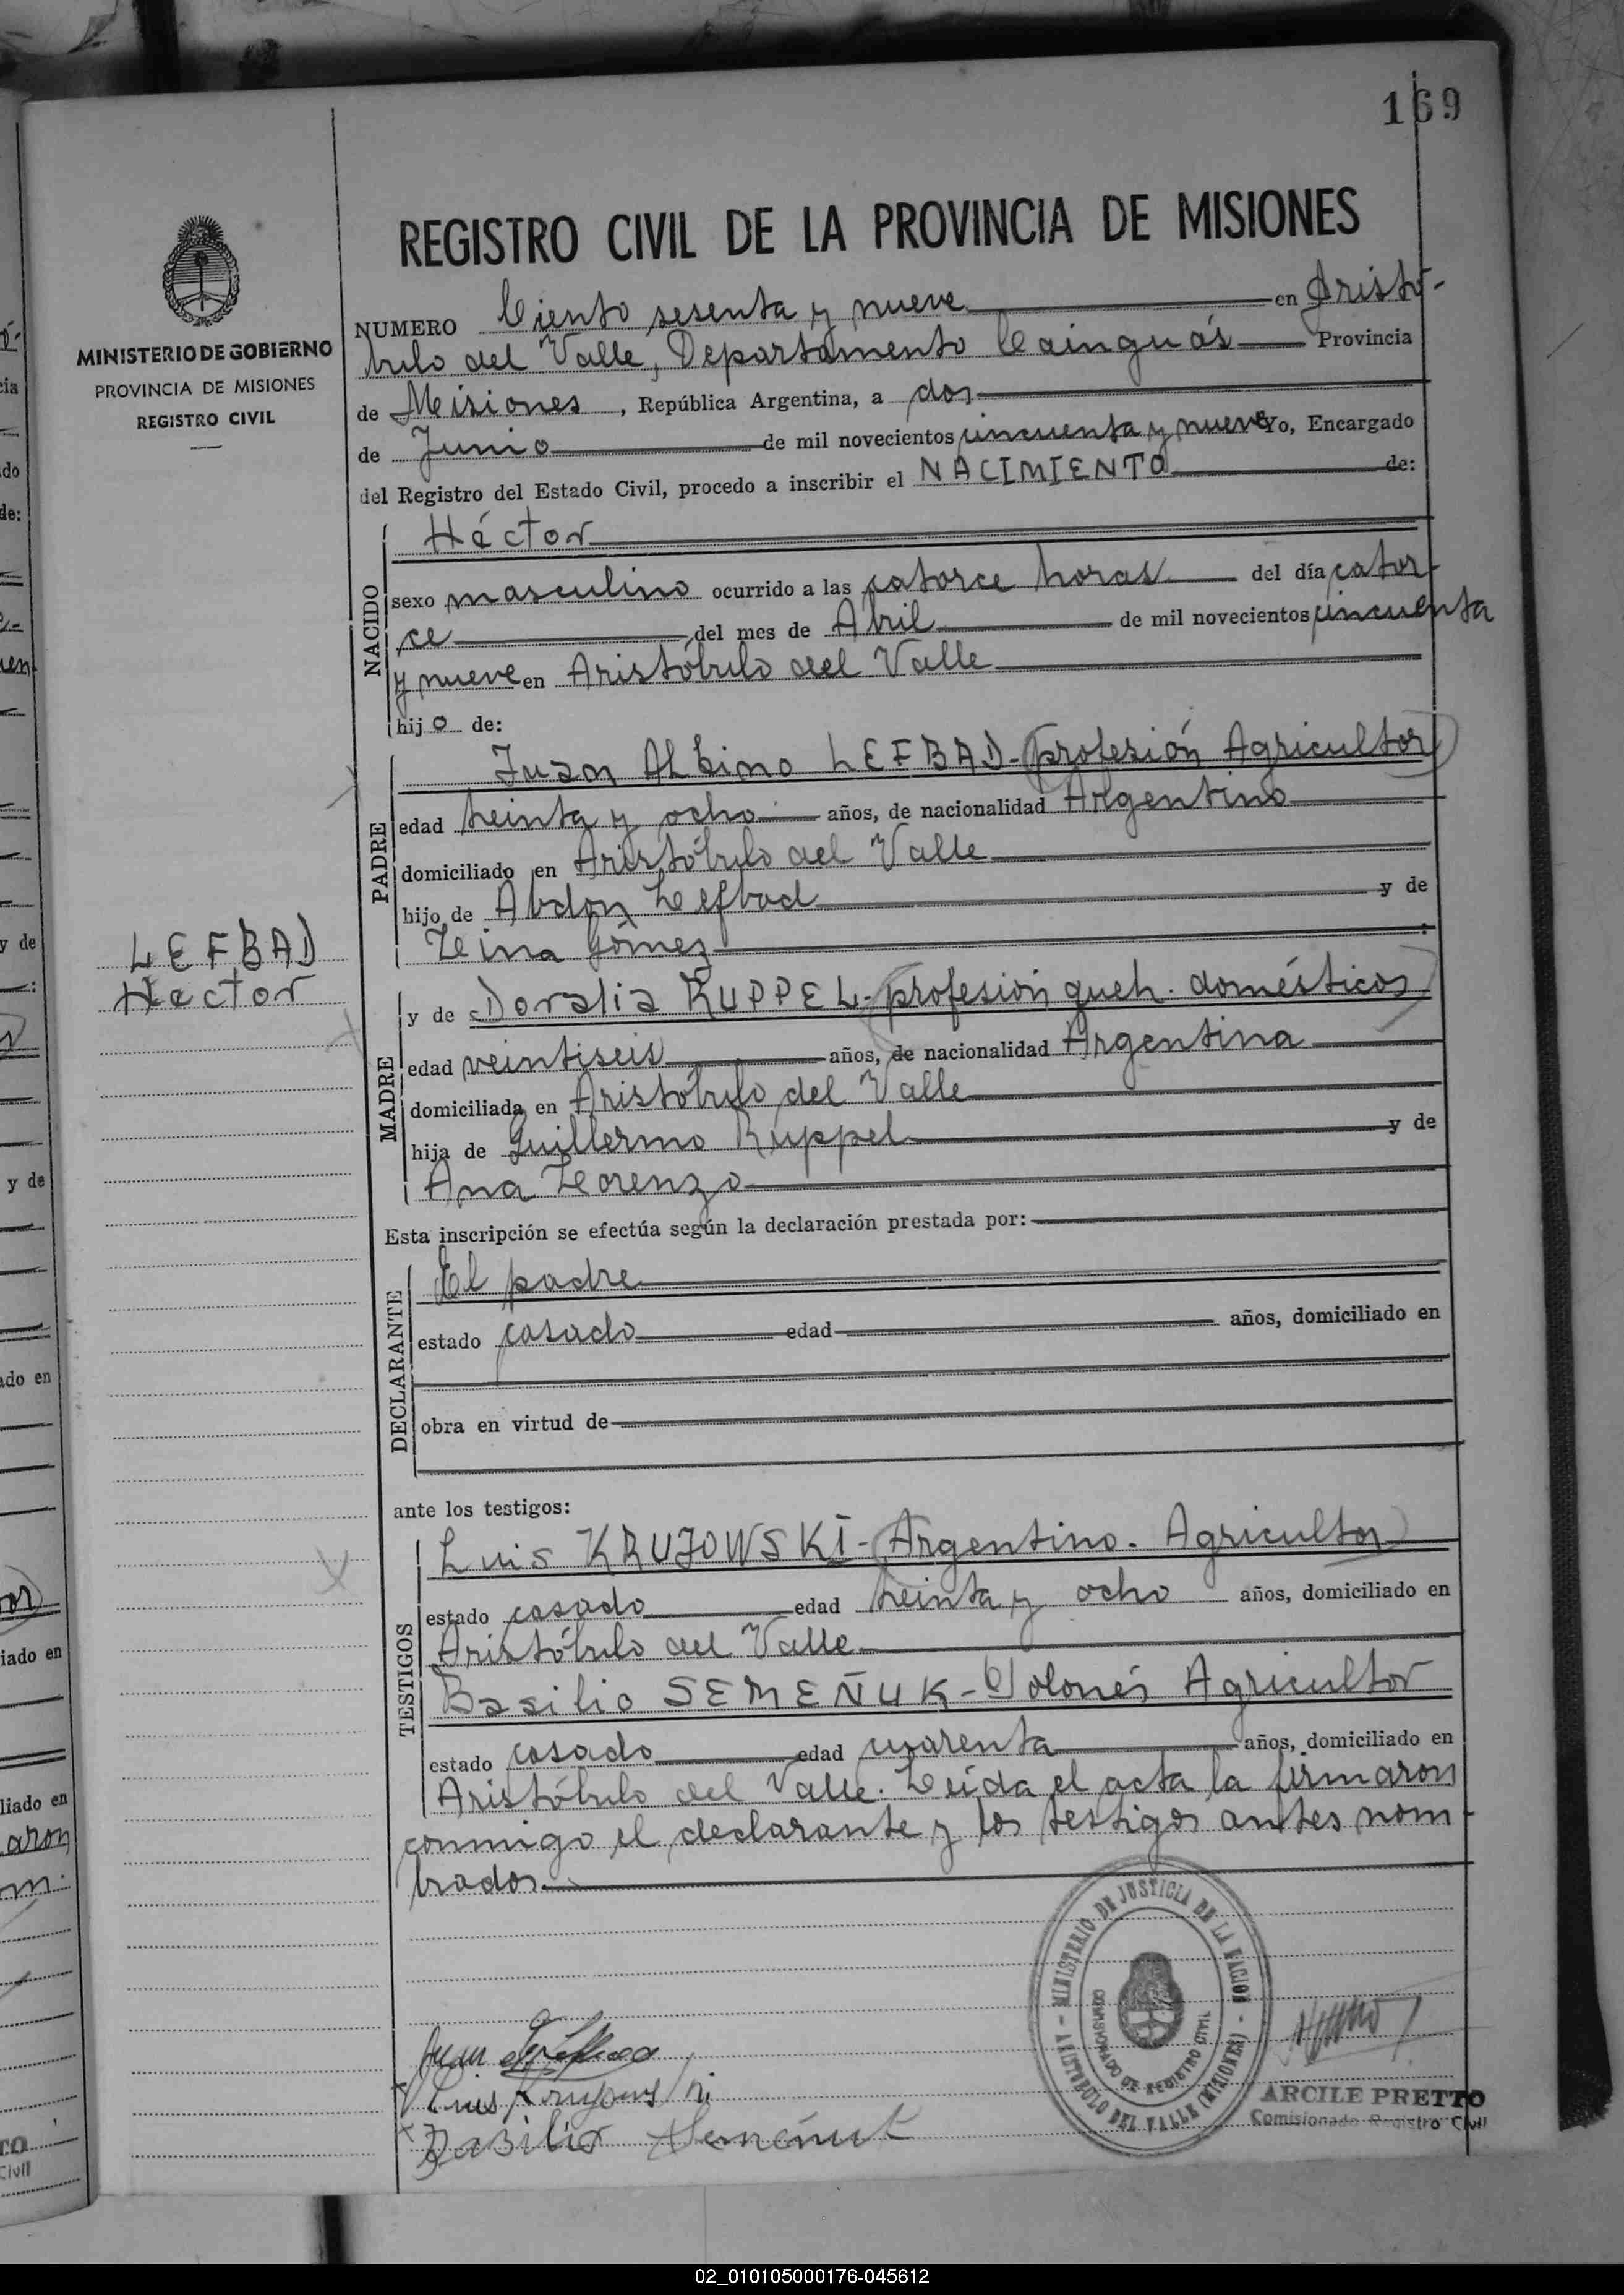 169
REGISTRO CIVIL DE LA PROVINCIA DE MISIONES
MINISTERIO DE GOBIERNO
PROVINCIA DE MISIONES
REGISTRO CIVIL
NUMERO Ciento sesenta y nueve en Aristó-
bulo del Valle, Departamento Cainguás Provincia
de Misiones, República Argentina, a dos
de Junio de mil novecientos cincuenta y nueve Yo, Encargado
del Registro del Estado Civil, procedo a inscribir el NACIMIENTO de:
NACIDO
Héctor
sexo masculino ocurrido a las catorce horas del día cator-
ce del mes de Abril de mil novecientos cincuenta
y nueve en Aristóbulo del Valle
hijo de:
PADRE
Juan Albino LEFBAD-profesión Agricultor
edad treinta y ocho años, de nacionalidad Argentino
domiciliado en Aristóbulo del Valle
hijo de Abdon Lefbad y de
Leina Gómez
LEFBAD
Hector
MADRE
y de Doralia RUPPEL-profesión queh. domésticos
edad veintiseis años, de nacionalidad Argentina
domiciliada en Aristóbulo del Valle
hija de Guillermo Ruppel y de
Ana Lorenzo
Esta inscripción se efectúa según la declaración prestada por:
DECLARANTE
El padre
estado casado edad años, domiciliado en
obra en virtud de
ante los testigos:
TESTIGOS
Luis KRUJOWSKI-Argentino. Agricultor
estado casado edad treinta y ocho años, domiciliado en
Aristóbulo del Valle
Basilio SEMEÑUK-Polonés Agricultor
estado casado edad cuarenta años, domiciliado en
Aristóbulo del Valle. Leída el acta la firmaron
conmigo el declarante y los testigos antes nom-
brados.
MINISTERIO DE JUSTICIA DE LA NACION
COMISIONADO DE REGISTRO CIVIL
ARISTOBULO DEL VALLE (MISIONES)
Juan
Luis
Basilio
ARCILE PRETTO
Comisionado Registro Civil
02_010105000176-045612